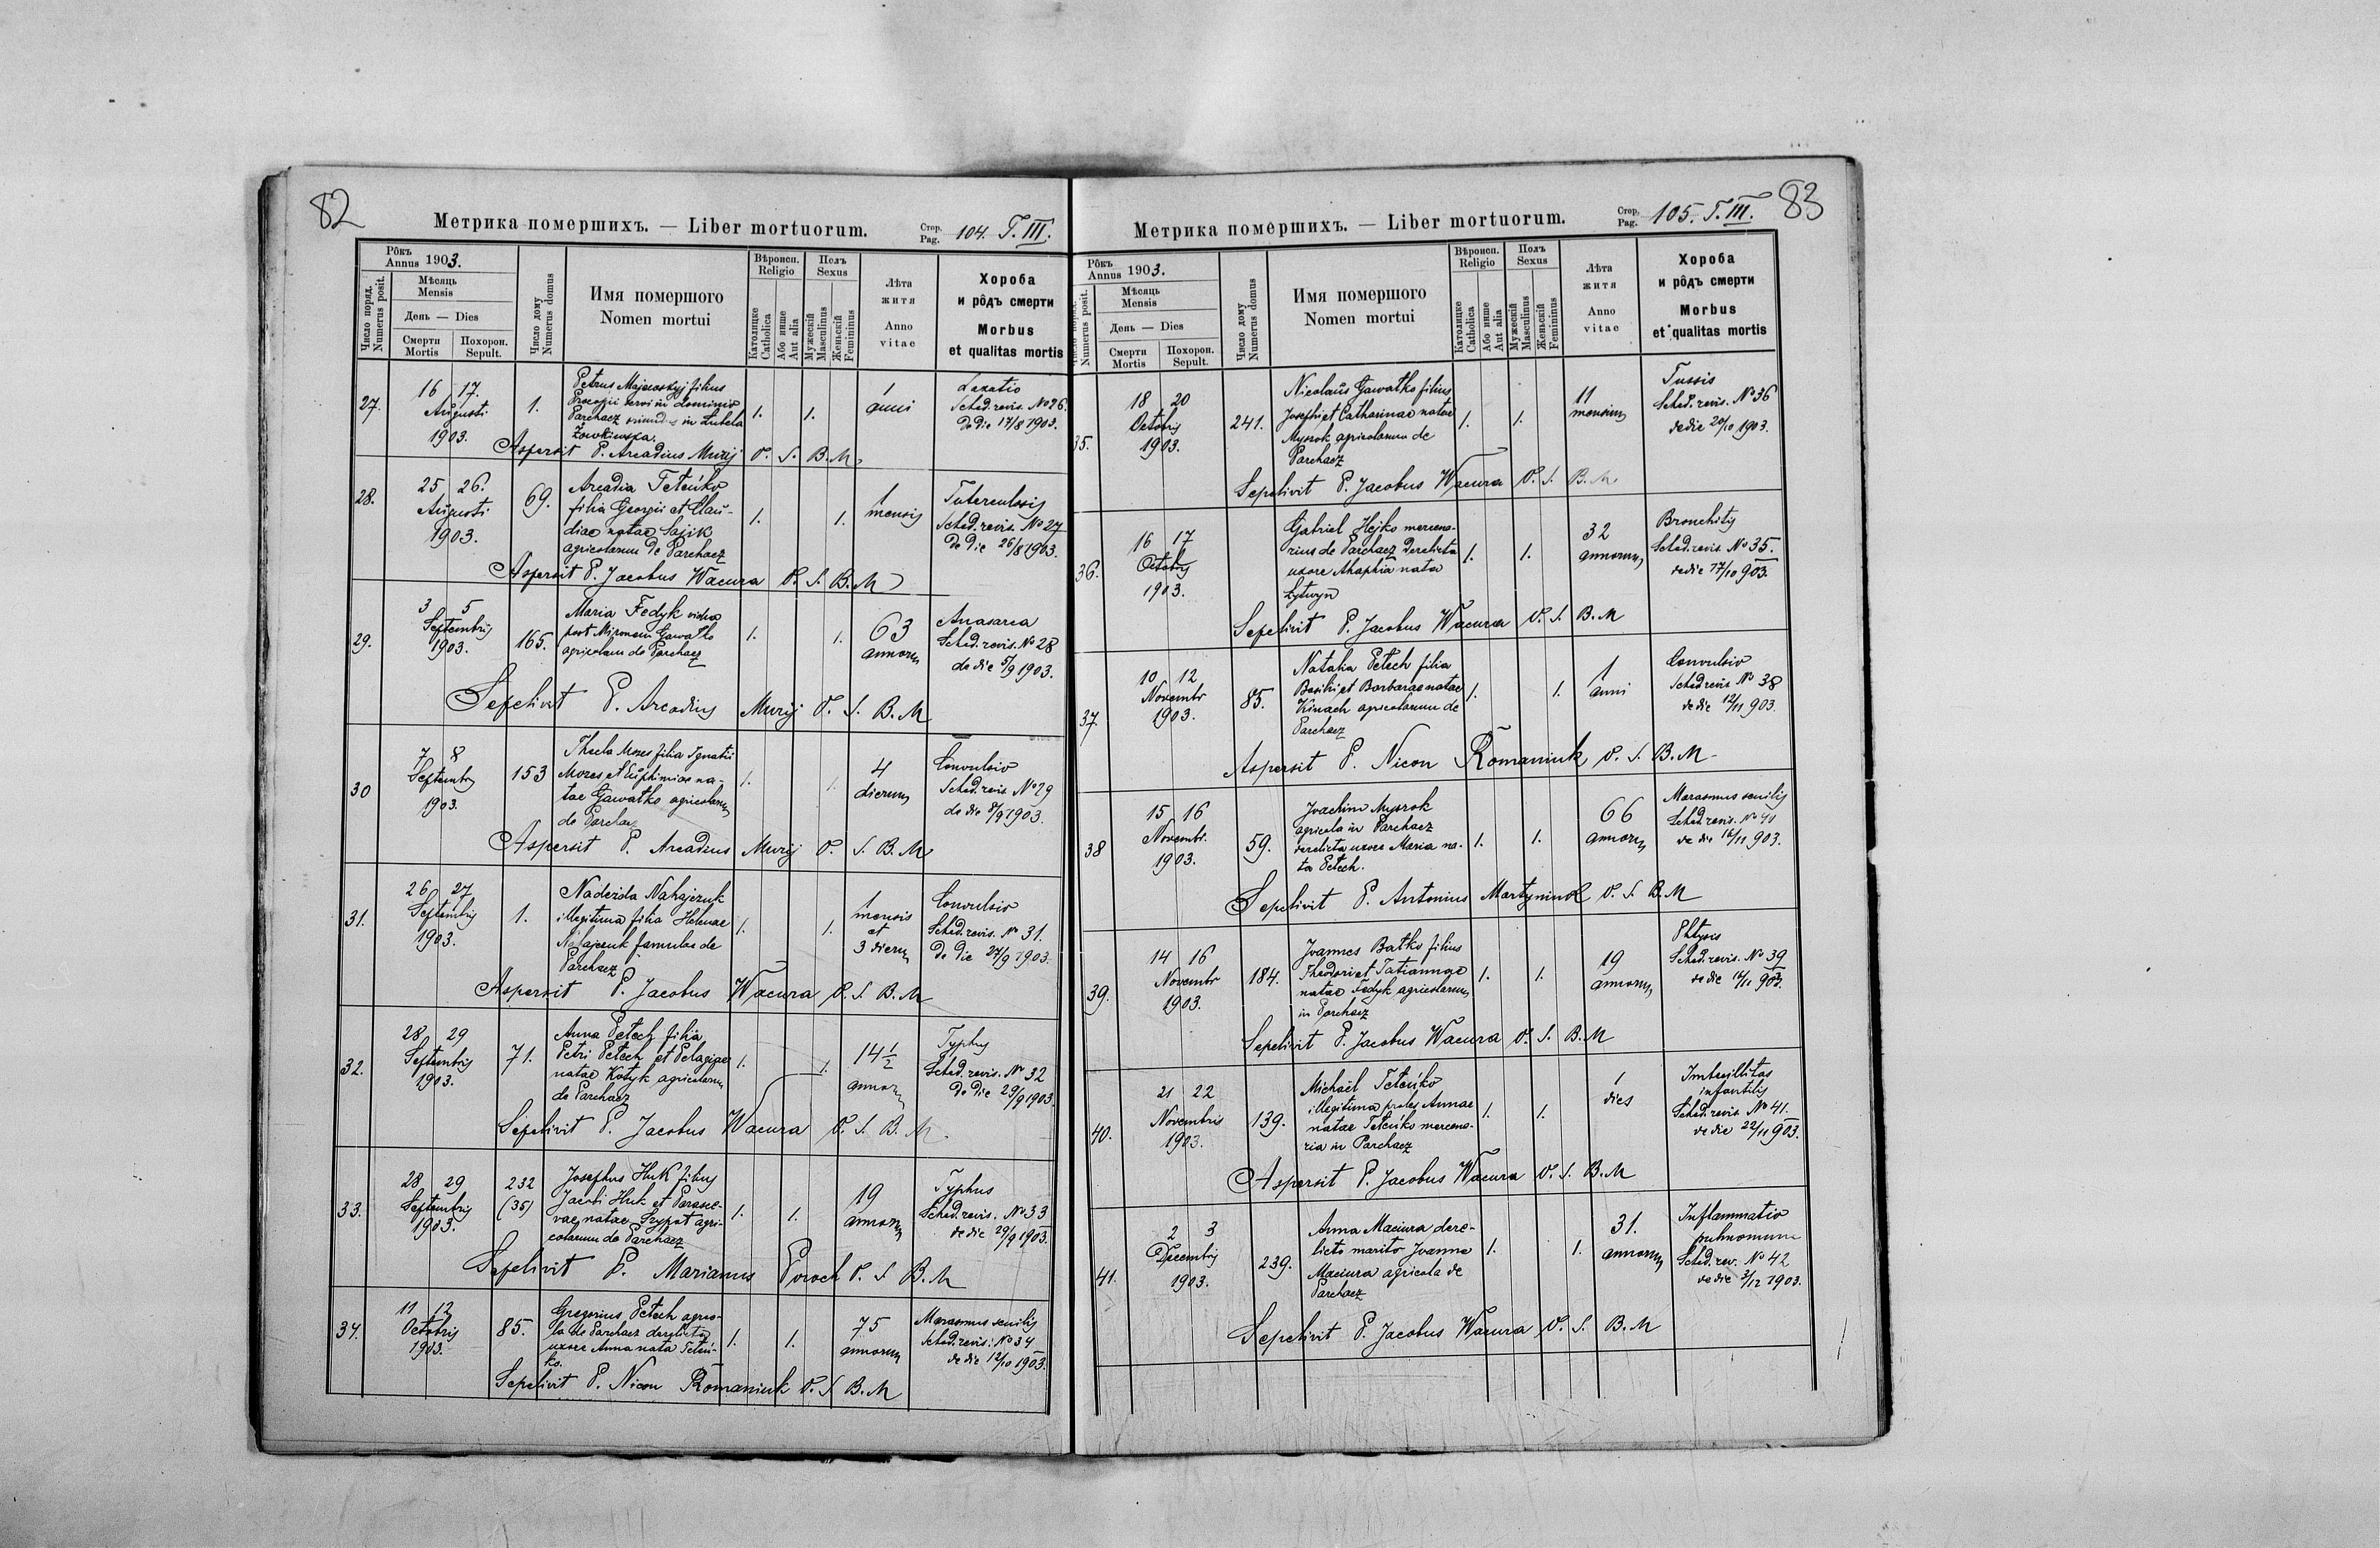 82
Метрика помершихъ. — Liber mortuorum.
Стор. Pag. 104. T. III.
Рôкъ Annus 1903.
Число поряд. Numerus posit.
Мѣсяць Mensis
День — Dies
Смерти Mortis
Похорон. Sepult.
Число дому Numerus domus
Имя помершого
Nomen mortui
Вѣроисп. Religio
Католицке Catholica
Або инше Aut alia
Полъ Sexus
Мужескій Masculinus
Женьскій Femininus
Лѣта житя
Anno vitae
Хороба
и рôдъ смерти
Morbus
et qualitas mortis
27.
16 17.
Augusti
1903.
1.
Petrus Majewskyj filius
Procopii servi in dominio
Parchacz oriund in Lubela
Żowkiewska.
1.
1.
1
anni
Laxatio
Sched. revis. No 26.
de die 17/8 1903.
Aspersit P. Arcadius Muryj O. S. B. M.
28.
25 26.
Augusti
1903.
69.
Arcadia Teteńko
filia Georgii et Clau-
diae natae Sajik
agricolarum de Parchacz
1.
1.
1
mensis
Tuberculosis
Sched. revis. No 27
de die 26/8 1903.
Aspersit P. Jacobus Wacura O. S. B. M
29.
3 5
Septembris
1903.
165.
Maria Fedyk vidua
post Mironem Gawałko
agricolam de Parchacz
1.
1.
63
annorum
Anasarca
Sched. revis. No 28
de die 5/9 1903.
Sepelivit P. Arcadius Muryj O. S. B. M
30
7 8
Septembr
1903.
153
Thecla Mozes filia Ignatii
Mozes et Euphimiae na-
tae Gawałko agricolarum
de Parchacz
1.
1.
4
dierum
Convulsio
Sched. revis No 29
de die 8/9 1903.
Aspersit P. Arcadius Muryj O. S. B. M
31.
26 27
Septembris
1903.
1.
Nadeżda Nahajczuk
illegitima filia Helenae
Nahajczuk famulae de
Parchacz
1.
1.
1
mensis
et
3 dierum
Convulsio
Sched. revis. No 31.
De die 27/9 1903.
Aspersit P. Jacobus Wacura O. S. B. M
32.
28 29
Septembris
1903.
71.
Anna Petech filia
Petri Petech et Pelagiae
natae Kotyk agricolarum
de Parchacz
1.
1.
14 1/2
annor
Typhus
Sched. revis. No 32
De die 29/9 1903.
Sepelivit P. Jacobus Wacura O. S. B. M.
33.
28 29
Septembris
1903.
232
(35)
Josephus Huk filius
Jacobi Huk et Parasce-
vae natae Szypot agri-
colarum de Parchacz
1.
1.
19
annorum
Typhus
Sched. revis. No 33
de die 29/9 1903.
Sepelivit P. Marianus Poroch O. S. B. M
34.
11 12
Octobris
1903.
85.
Gregorius Petech agrico-
la de Parchacz derelicta
uxore Anna nata Teteń-
ko.
1.
1.
75
annorum
Marasmus senilis
Sched. revis: No 34
de die 12/10 1903.
Sepelivit P. Nicon Romaniuk O. S. B. M
83
Метрика помершихъ. — Liber mortuorum.
Стор. Pag. 105. T. III.
Рôкъ Annus 1903.
Numerus posit.
Мѣсяць Mensis
День — Dies
Смерти Mortis
Похорон. Sepult.
Число дому Numerus domus
Имя помершого
Nomen mortui
Вѣроисп. Religio
Католицке Catholica
Або инше Aut alia
Полъ Sexus
Мужескій Masculinus
Женьскій Femininus
Лѣта житя
Anno vitae
Хороба
и рôдъ смерти
Morbus
et qualitas mortis
35.
18 20
Octobris
1903.
241.
Nicolaus Gawałko filius
Josephi et Catharinae natae
Mysrok agricolarum de
Parchacz
1.
1.
11
mensium
Tussis
Sched. revis. No 36
de die 20/10 1903.
Sepelivit P. Jacobus Wacura O. S. B. M
36.
16 17
Octobris
1903.
Gabriel Hejko mercena-
rius de Parchacz derelicta
uxore Ahaphia nata
Łytwyn
1.
1.
32
annorum
Bronchitis
Sched. revis. No 35.
de die 17/10 903.
Sepelivit P. Jacobus Wacura O. S. B. M
37.
10 12
Novembr
1903.
85.
Natalia Petech filia
Basilii et Barbarae natae
Kinach agricolarum de
Parchacz
1.
1.
1
anni
Convulsio
Sched revis No 38
de die 12/11 903.
Aspersit P. Nicon Romaniuk O. S. B. M
38
15 16
Novembr.
1903.
59.
Joachim Mysrok
agricola in Parchacz
derelicta uxore Maria na-
ta Petech.
1.
1.
66
annorum
Marasmus senilis
Sched. revis. No 40
de die 16/11 903.
Sepelivit P. Antonius Martyniuk O. S. B. M
39.
14 16
Novembr
1903.
184.
Joannes Batko filius
Theodori et Tatiannae
natae Fedyk agricolarum
in Parchacz
1.
1.
19
annorum
Phtysis
Sched. revis. No 39
de die 903.
Sepelivit P. Jacobus Wacura O. S. B. M
40.
21 22
Novembris
1903.
139.
Michaël Teteńko
illegitima proles Annae
natae Teteńko mercena-
ria in Parchacz
1.
1.
1
dies
Imbecillitas
infantilis
Sched. revis. No 41.
de die 22/11 903.
Aspersit P. Jacobus Wacura O. S. B. M
41.
2 3
Decembris
1903.
239.
Anna Maciura dere-
licto marito Joanne
Maciura agricola de
Parchacz
1.
1.
31.
annorum
Inflammatio
pulmonum
Sched. rev. No 42
de die 3/12 1903.
Sepelivit P. Jacobus Wacura O. S. B. M